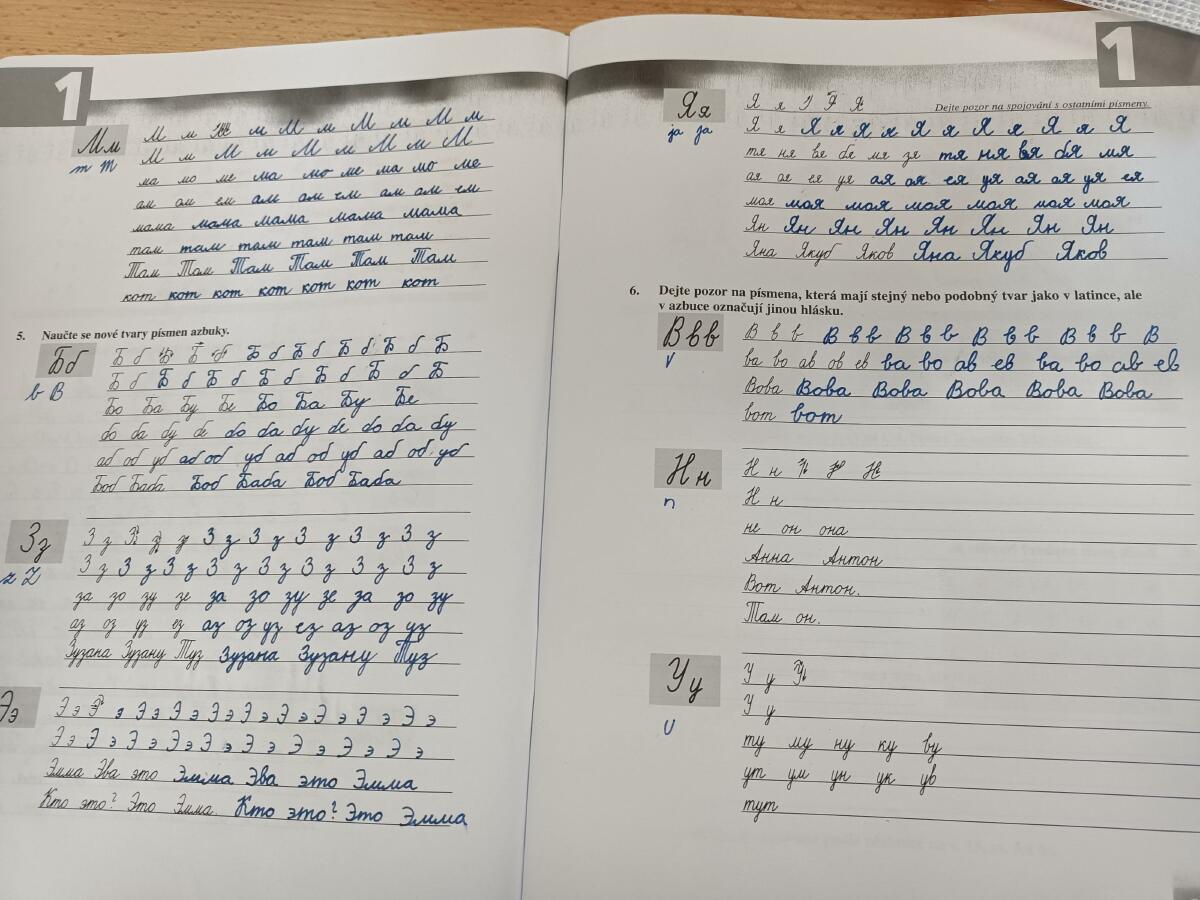 1
Мм
m M
М м М м М м М м М м М м
М м М м М м М м М м М
ма мо ме ма мо ме ма мо ме
ам ом ем ам ам ем ам ам ем
мама мама мама мама мама
там там там там там там
Там Там Там Там Там Там
кот кот кот кот кот кот кот
5. Naučte se nové tvary písmen azbuky.
Бб
b B
Б б Б б Б б Б б Б б Б б Б
Б б Б б Б б Б б Б б Б
Бо Ба Бу Бе Бо Ба Бу Бе
бо ба бу бе бо ба бу бе бо ба бу
аб об уб аб об уб аб об уб аб об уб
Боб Баба Боб Баба Боб Баба
Зз
z Z
З з З з з З з З з З з З з З з
З з З з З з З з З з З з З з З з
за зо зу зе за зо зу зе за зо зу
аз оз уз ез аз оз уз ез аз оз уз
Зузана Зузану Туз Зузана Зузану Туз
Ээ
Э э Э э Э э Э э Э э Э э Э э Э э Э э
Э э Э э Э э Э э Э э Э э Э э Э э Э э
Эмма Эва это Эмма Эва это Эмма
Кто это? Это Эмма. Кто это? Это Эмма
1
Яя
ja ja
Я я Я Я
Dejte pozor na spojování s ostatními písmeny.
Я я Я я Я я Я я Я я Я я Я
тя ня вя бя мя зя тя ня вя бя мя
ая оя ея уя ая оя ея уя ая оя уя ея
моя моя моя моя моя моя моя
Ян Ян Ян Ян Ян Ян Ян Ян
Яна Якуб Яков Яна Якуб Яков
6. Dejte pozor na písmena, která mají stejný nebo podobný tvar jako v latince, ale
v azbuce označují jinou hlásku.
Ввв
v
В в в В в в В в в В в в В в в В
ва во ав ов ев ва во ав ев ва во ав ев
Вова Вова Вова Вова Вова Вова
вот вот
Нн
n
Н н Н н Н
Н н
не он она
Анна Антон
Вот Антон.
Там он.
Уу
U
У у У
У у
ту му ну ку ву
ут ум ун ук ув
тут